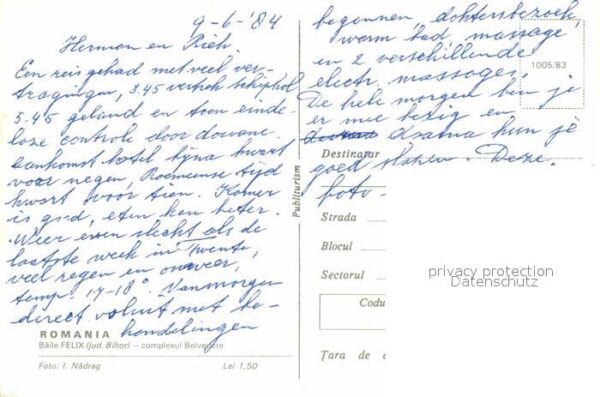 9-6-'84
Herman en Rieh.
Een reis gehad met veel ver-
tragingen, 3.45 vertrek Schiphol
5.45 geland en toen einde-
loze controle door douane.
Aankomst hotel bijna kwart
voor negen, Roemeense tijd
kwart voor tien. Kamer
is goed, eten kon beter.
Weer even slecht als de
laatste week in Twente,
veel regen en onweer,
temp. 17-18°. Vanmorgen
direct voluit met be-
handelingen
begonnen, doktersbezoek,
warm bad massage
en 2 verschillende
electr. massages,
De hele morgen ben je
er mee bezig en
daarna kun je
goed slapen. Deze
foto -
ROMANIA
Băile FELIX (jud. Bihor) – complexul Belvedere
Foto: I. Nădrag
Lei 1,50
Publiturism
1005/83
Destinatar
Strada
Blocul
Sectorul
Codu
Țara de
privacy protection
Datenschutz